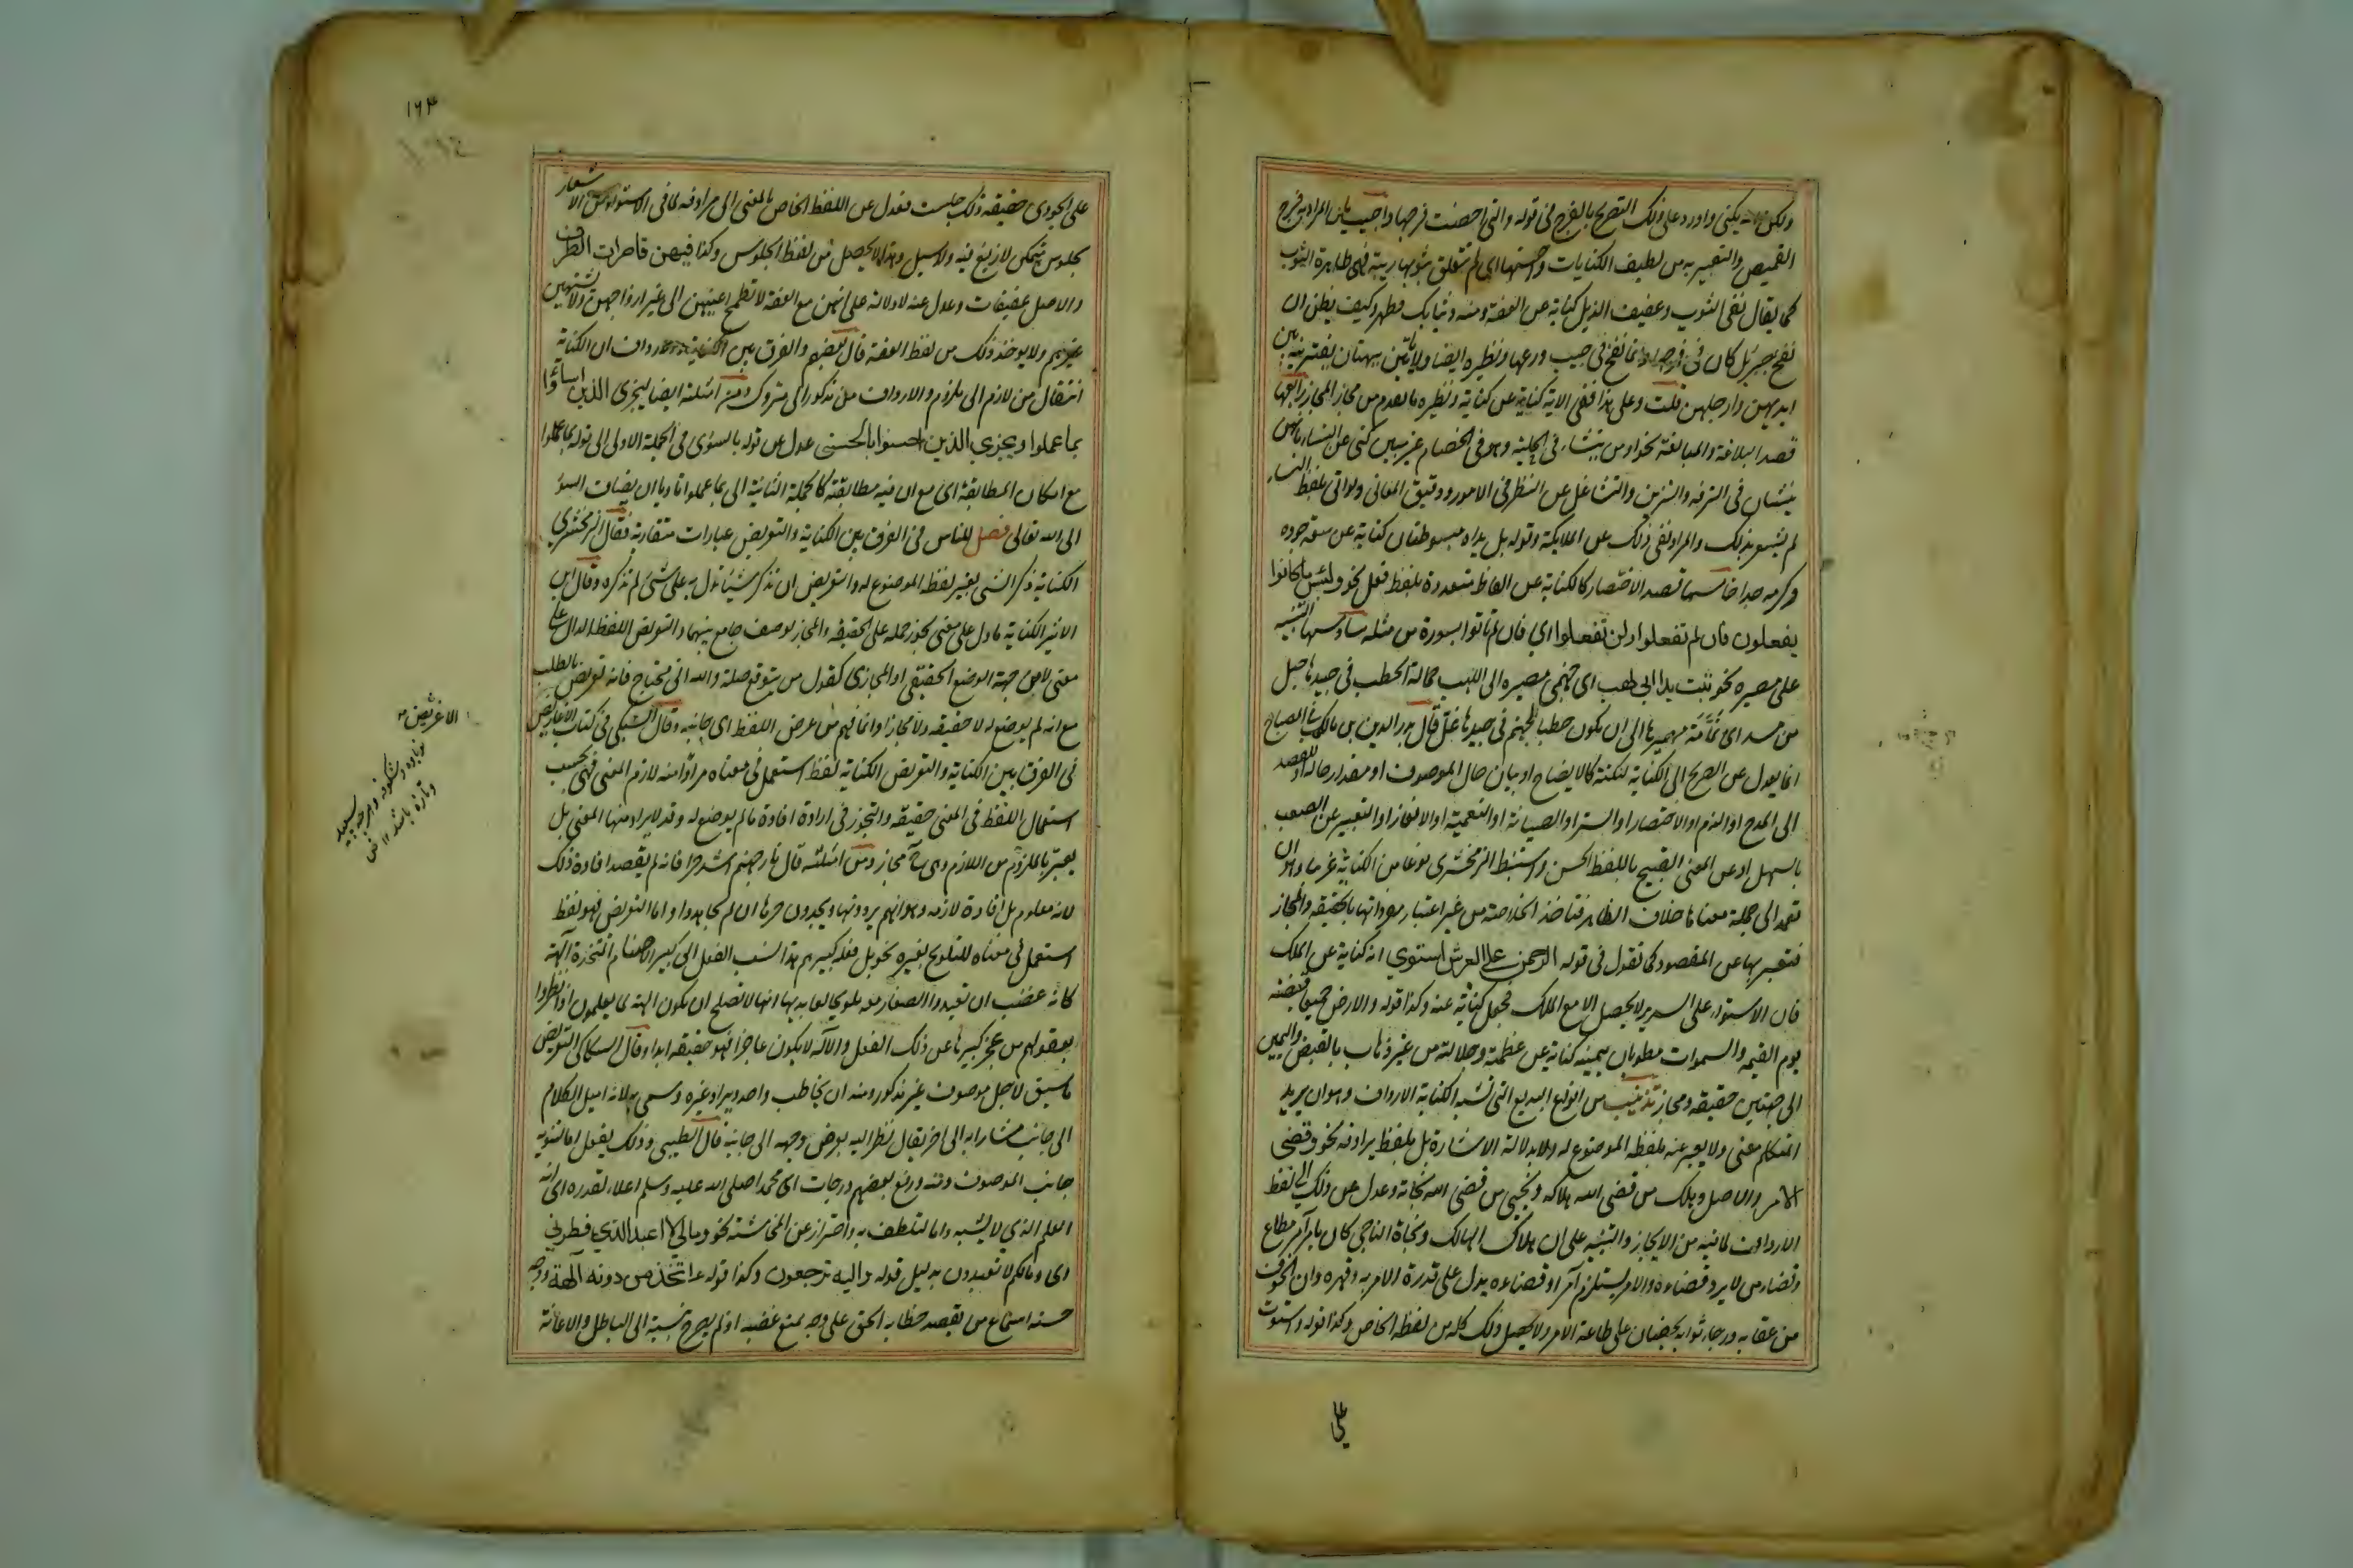 ولكن الله يكنى واورد على ذلك التصريح بالفرج فى قوله والتى احصنت فرجها واجيب بان المراد به فرج
القميص والتعبير به من لطيف الكنايات واحسنها اى لم يتعلق ثوبها بريبة فهى طاهرة الثوب
كما يقال نقى الثوب وعفيف الذيل كناية عن العفة ومنه وثيابك فطهر وكيف يظن ان
نفخ جبرئيل كان فى فرجها وانما نفخ فى جيب درعها ونظيره ايضا ولا يأتين ببهتان يفترينه بين
ايديهن وارجلهن قلت وعلى هذا ففى الاية كناية عن كناية ونظيره ما تقدم من مجاز المجاز رابعها
قصد البلاغة والمبالغة نحو او من ينشاء فى الحلية وهو فى الخصام غير مبين كنى عن النساء بانهن
ينشأن فى الترفه والتزين والتشاغل عن النظر فى الامور ودقيق المعانى ولو اتى بلفظ النساء
لم يشعر بذلك والمراد نفى ذلك عن الملايكة وقوله بل يداه مبسوطتان كناية عن سعة جوده
وكرمه جدا خامسها قصد الاختصار كالكناية عن الفاظ متعددة بلفظ فعل نحو ولبئس ما كانوا
يفعلون فان لم تفعلوا ولن تفعلوا اى فان لم تاتوا بسورة من مثله سادسها التنبيه
على مصيره نحو تبت يدا ابى لهب اى جهنمى مصيره الى اللهب حمالة الحطب فى جيدها حبل
من مسد اى نمامة مصيرها الى ان يكون حطبا لجهنم فى جيدها غل قال بدر الدين بن مالك فى المصباح
انما يعدل عن الصريح الى الكناية لنكتة كالايضاح او بيان حال الموصوف او مقدار حاله او القصد
الى المدح او الذم او الاختصار او الستر او الصيانة او التعمية او الالغاز او التعبير عن الصعب
بالسهل او عن المعنى القبيح باللفظ الحسن واستنبط الزمخشرى نوعا من الكناية غريبا وهو ان
تعمد الى جملة معناها خلاف الظاهر فتاخذ الخلاصة من غير اعتبار مفرداتها بالحقيقة والمجاز
فتعبر بها عن المقصود كما تقول فى قوله الرحمن على العرش استوى انه كناية عن الملك
فان الاستواء على السرير لا يحصل الا مع الملك فجعل كناية عنه وكذا قوله والارض جميعا قبضته
يوم القيمة والسموات مطويات بيمينه كناية عن عظمته وجلالته من غير ذهاب بالقبض واليمين
الى جهتين حقيقة ومجاز تذنيب من انواع البديع التى تشبه الكناية الارداف وهو ان يريد
المتكلم معنى ولا يعبر عنه بلفظه الموضوع له ولا بدلالة الاشارة بل بلفظ يرادفه نحو وقضى
الامر والاصل وهلك من قضى الله هلاكه ونجى من قضى الله نجاته وعدل عن ذلك الى لفظ
الارداف لما فيه من الايجاز والتنبيه على ان هلاك الهالك ونجاة الناجى كان بامر آمر مطاع
وقضاء من لا يرد قضاءه والامر يستلزم آمرا وقضاءه يدل على قدرة الامر به وقهره وان الخوف
من عقابه ورجاء ثوابه يحضان على طاعة الامر ولا يحصل ذلك كله من لفظه الخاص وكذا قوله واستوت
على
۱۶۴
على الجودى حقيقة ذلك جلست فعدل عن اللفظ الخاص بالمعنى الى مرادفه لما فى الاستواء من الاشعار
بجلوس متمكن لا زيغ فيه ولا ميل وهذا لا يحصل من لفظ الجلوس وكذا فيهن قاصرات الطرف
والاصل عفيفات وعدل عنه للدلالة على انهن مع العفة لا تطمح اعينهن الى غير ازواجهن ولا يشتهين
غيرهم ولا يوخذ ذلك من لفظ العفة قال بعضهم والفرق بين الكناية والارداف ان الكناية
انتقال من لازم الى ملزوم والارداف من مذكور الى متروك ومن امثلته ايضا ليجزى الذين اساؤا
بما عملوا ويجزي الذين احسنوا بالحسنى عدل عن قوله بالسوى فى الجملة الاولى الى قوله بما عملوا
مع امكان المطابقة اى مع ان فيه مطابقة كالجملة الثانية الى بما عملوا تادبا ان يضاف السوء
الى الله تعالى فصل للناس فى الفرق بين الكناية والتعريض عبارات متقاربة فقال الزمخشرى
الكناية ذكر الشى بغير لفظه الموضوع له والتعريض ان تذكر شيئا تدل به على شئ لم تذكره وقال ابن
الاثير الكناية ما دل على معنى يجوز حمله على الحقيقة والمجاز بوصف جامع بينهما والتعريض اللفظ الدال على
معنى لا من جهة الوضع الحقيقى او المجازى كقول من يتوقع صلة والله انى محتاج فانه تعريض بالطلب
مع انه لم يوضع له لا حقيقة ولا مجازا وانما فهم من عرض اللفظ اى جانبه وقال السبكى فى كتاب الاغريض
فى الفرق بين الكناية والتعريض الكناية لفظ استعمل فى معناه مرادا منه لازم المعنى فهى بحسب
استعمال اللفظ فى المعنى حقيقة والتجوز فى ارادة افادة ما لم يوضع له وقد لا يراد منها المعنى بل
يعبر بالملزوم عن اللازم وهى ح مجاز ومن امثلته قال نار جهنم اشد حرا فانه لم يقصد افادة ذلك
لانه معلوم بل افادة لازمه وهو انهم يردونها ويجدون حرها ان لم يجاهدوا واما التعريض فهو لفظ
استعمل فى معناه للتلويح بغيره نحو بل فعله كبيرهم هذا نسب الفعل الى كبير الاصنام المتخذة آلهة
كانه غضب ان تعبدوا الصغار معه تلويحا لعابديها انها لا تصلح ان يكون الهة لما يعلمون اذا نظروا
بعقولهم من عجز كبيرها عن ذلك الفعل والاله لا يكون عاجزا فهو حقيقة ابدا وقال السكاكى التعريض
ما سيق لاجل موصوف غير مذكور ومنه ان يخاطب واحد ويراد غيره وسمى به لانه اميل الكلام
الى جانب مشارا به الى اخر يقال نظر اليه بعرض وجهه الى جانبه قال الطيبى وذلك يفعل اما لتنويه
جانب الموصوف ومنه ورفع بعضهم درجات اى محمدا صلى الله عليه وسلم اعلاء لقدره اى انه
العلم الذي لا يشتبه واما لتلطف به واحتراز عن المخاشنة نحو ومالي لا اعبد الذي فطرني
اى ومالكم لا تعبدون بدليل قوله واليه ترجعون وكذا قوله ءاتخذ من دونه آلهة ووجه
حسنه اسماع من يقصد خطابه الحق على وجه يمنع غضبه اذ لم يصرح بنسبته الى الباطل والاعانة
الاغريض
شكوفه وهرچه سپيد
وتازه باشد